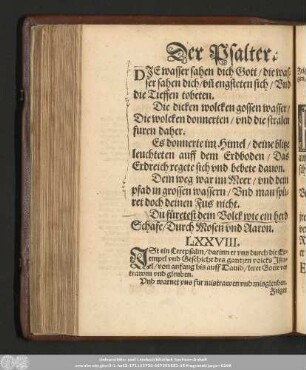 Der Psalter.
DIE wasser sahen dich Gott / die was-
ser sahen dich / vñ engsteten sich / Vnd
die Tieffen tobeten.
Die dicken wolcken gossen wasser /
Die wolcken donnerten / vnd die stralen
furen daher.
Es donnerte im Himel / deine blitze
leuchteten auff dem Erdboden / Das
Erdreich regete sich vnd bebete dauon.
Dein weg war im Meer / vnd dein
pfad in grossen wassern / Vnd man spü-
ret doch deinen Fus nicht.
Du füretest dein Volck wie ein herd
Schafe / Durch Mosen vnd Aaron.
LXXVIII.
IST ein Leerpsalm / darinn er vns durch die Ex-
empel vnd Geschicht des gantzen volcks Jsra-
el / von anfang bis auff Dauid / leret Gott ver-
trawen vnd gleuben.
Vnd warnet vns für mistrawen vnd misgleuben.